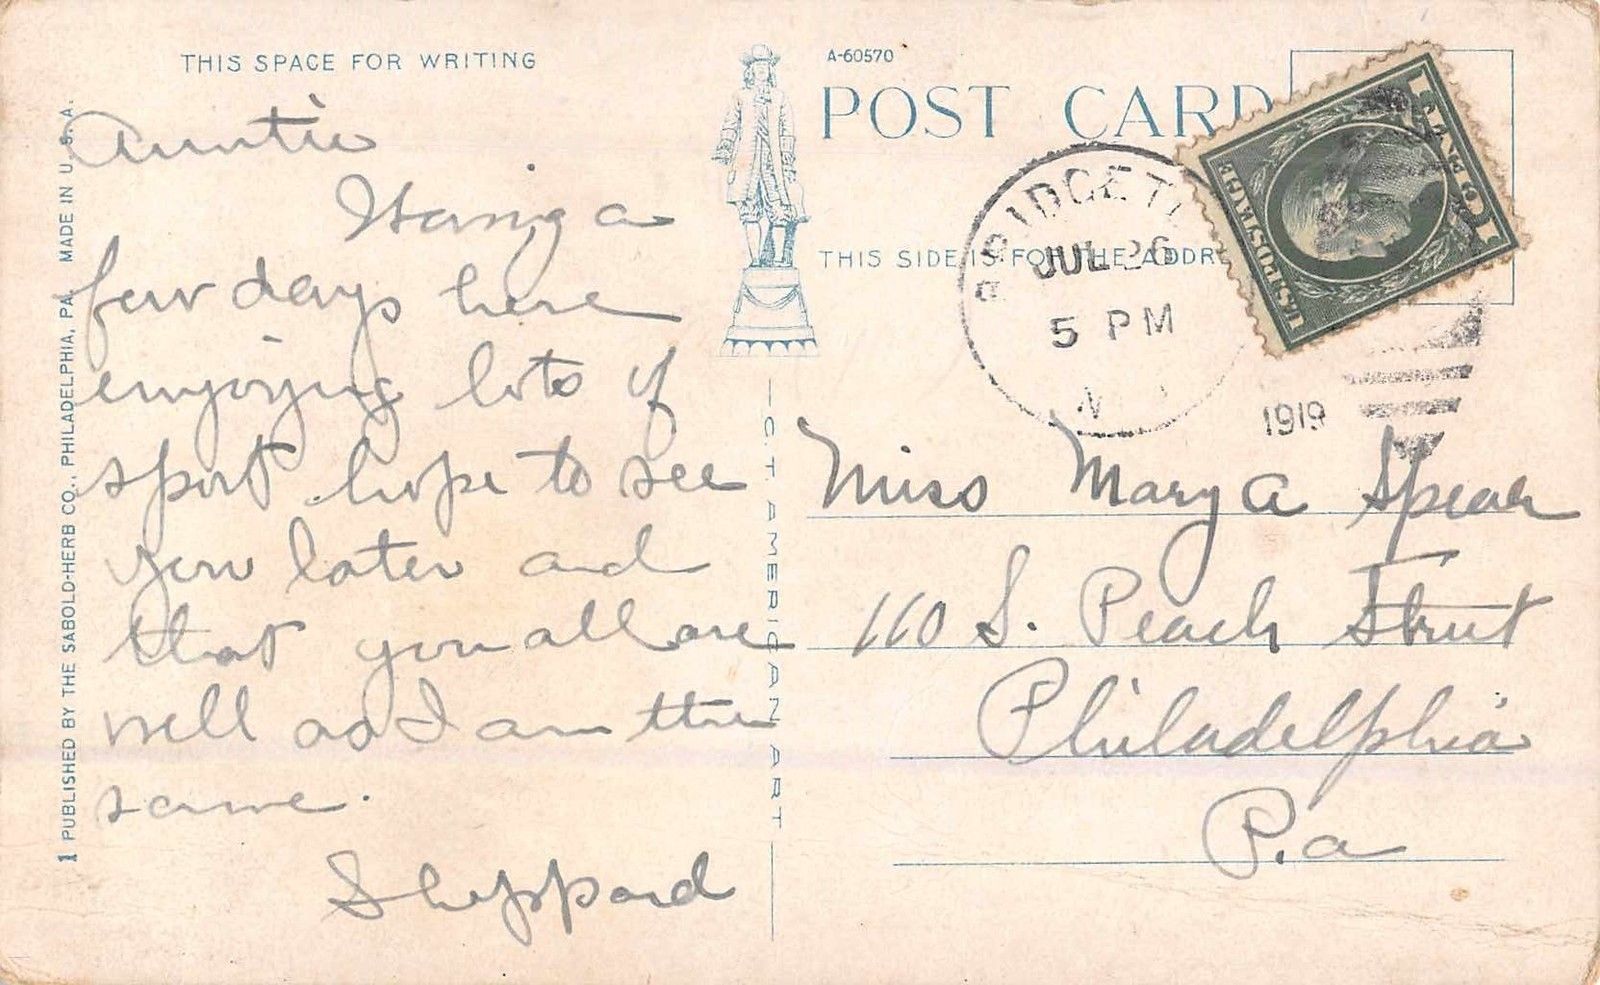 THIS SPACE FOR WRITING
Auntie
Having a
few days here
enjoying lots of
sport hope to see
you later and
that you all are
well as I am the
same.
Sheppard
1 PUBLISHED BY THE SABOLD-HERB CO., PHILADELPHIA, PA. MADE IN U. S. A.
C. T. AMERICAN ART
A-60570
POST CARD
THIS SIDE IS FOR THE ADDR
BRIDGETO
JUL 26
5 PM
N.J.
1919
U.S. POSTAGE
1 CENT 1
Miss Mary A Spear
110 S. Peach Street
Philadelphia
P.a